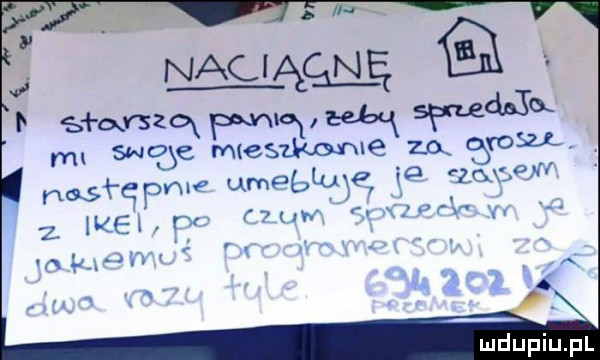 NACIĄGNĘ
starszą panią, żeby sprzedała
mi swoje mieszkanie za grosze.
następnie umebluję je szajsem
z IKEI, po czym sprzedam je
jakiemuś programersowi za
dwa razy tyle. 694 202
PRZEMEK
mdupiu.pl